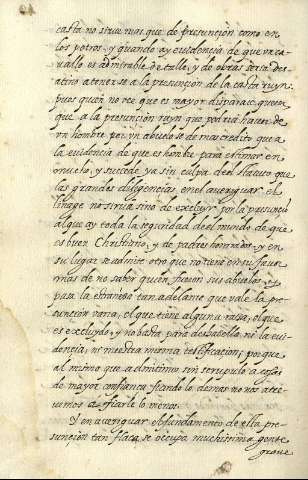 casta no sirue mas que de presuncion como en
los potros, y quando ay esidencia de que un ca
uallo es admirable de talle, y de obras seria des
atino atenerse a la presuncion de la casta ruyn.
pues quien no vee que es mayor disparate querer
que a la presuncion ruyn que podria hacer de
vn hombre por vn abuelo se de mas credito que a
la euidencia de que es hombre para estimar en
mucho, y sucede ya sin culpa del statuto que
las grandes diligencias en el aueriguar el
linage no siruan sino de excluyr por la presuncion
al que ay toda la seguridad del mundo de que
es buen Christiano, y de padres honrados y en
su lugar se admite otro que no tiene en su fauor
mas de no saber quien fueron sus abuelos, y
pasa la estrañeza tan adelante que vale la pre
suncion vana, el que tiene alguna raça, el que
es excluydo, y no basta para deshacella, ni la eui
dencia, ni nuestra misma testificacion, porque
al mismo que admitimos sin scrupulo a cosas
de mayor confiança fiando lo demas no nos atre
uemos a fiarle lo menos.
Y en aueriguar el fundamento de esta pre
suncion tan flaca, se ocupa muchissima gente
graue